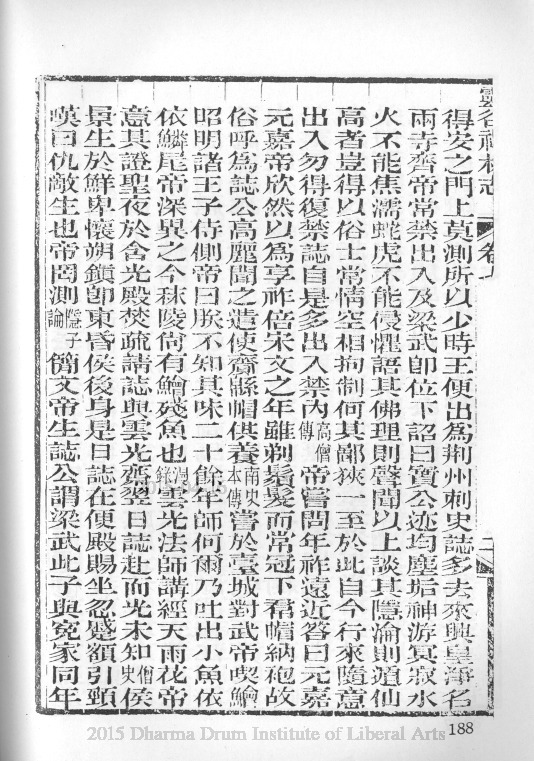 雲谷禪林志 卷七
得安之門上莫測所以少時王便出為荆州刺史誌多去來興皇淨名
兩寺齊帝常禁出入及梁武卽位下詔曰寶公迹均塵垢神游冥寂水
火不能焦濡蛇虎不能侵懼語其佛理則聲聞以上談其隱淪則遁仙
高者豈得以俗士常情空相拘制何其鄙狹一至於此自今行來隨意
出入勿得復禁誌自是多出入禁內高僧傳帝嘗問年祚遠近答曰元嘉
元嘉帝欣然以為享祚倍宋文之年雖剃鬚髮而常冠下帬帽納袍故
俗呼為誌公高麗聞之遣使齎緜帽供養南史本傳嘗於臺城對武帝喫鱠
昭明諸王子侍側帝曰朕不知其味二十餘年師何爾乃吐出小魚依
依鱗尾帝深異之今秣陵尙有鱠殘魚也雲光法師講經天雨花帝
意其證聖夜於含光殿焚疏請誌與雲光齋翌日誌赴而光未知僧史侯
景生於鮮卑懷朔鎭卽東昏侯後身是日誌在便殿賜坐忽蹙額引頸
嘆曰仇敵生也帝罔測隱子論簡文帝生誌公謂梁武此子與冤家同年
188
2015 Dharma Drum Institute of Liberal Arts